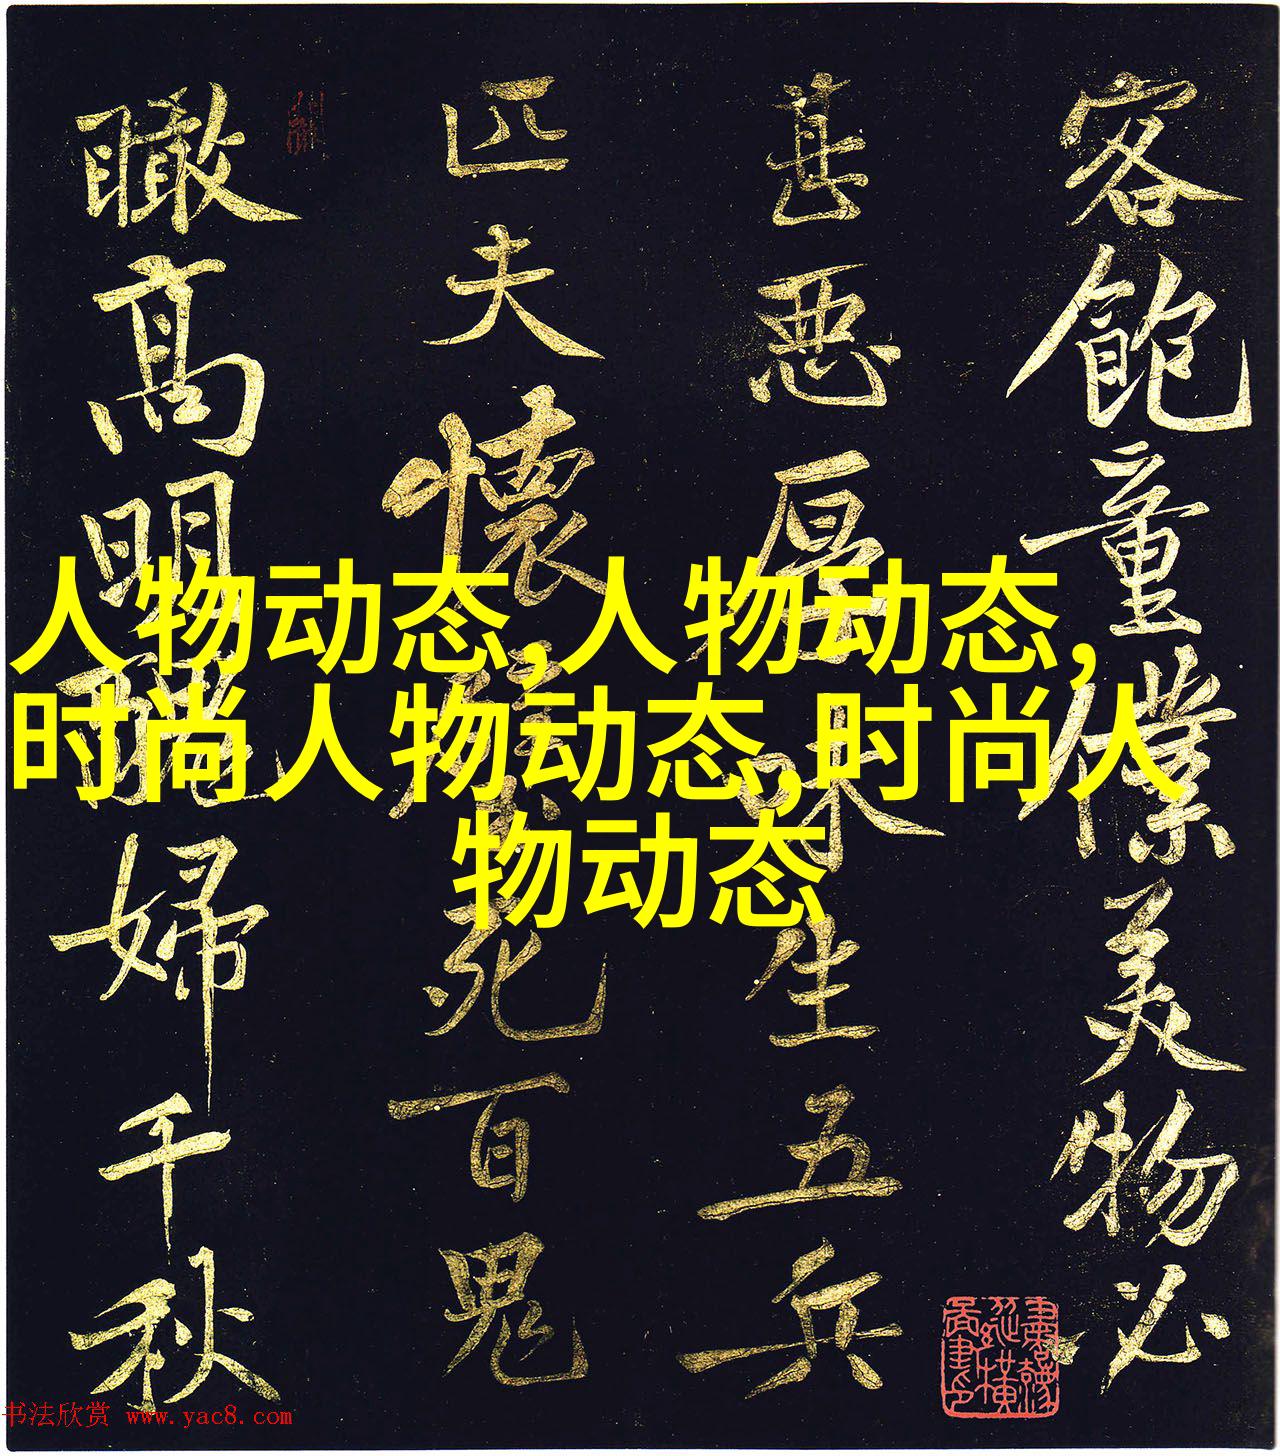 人物动态,人物动态,
时尚人物动态,时尚人
物动态
客飽童僕美物必
甚惡厚味生五兵
匹夫懷死百鬼
瞰高明醜婦千秋
书法欣赏 www.yac8.com